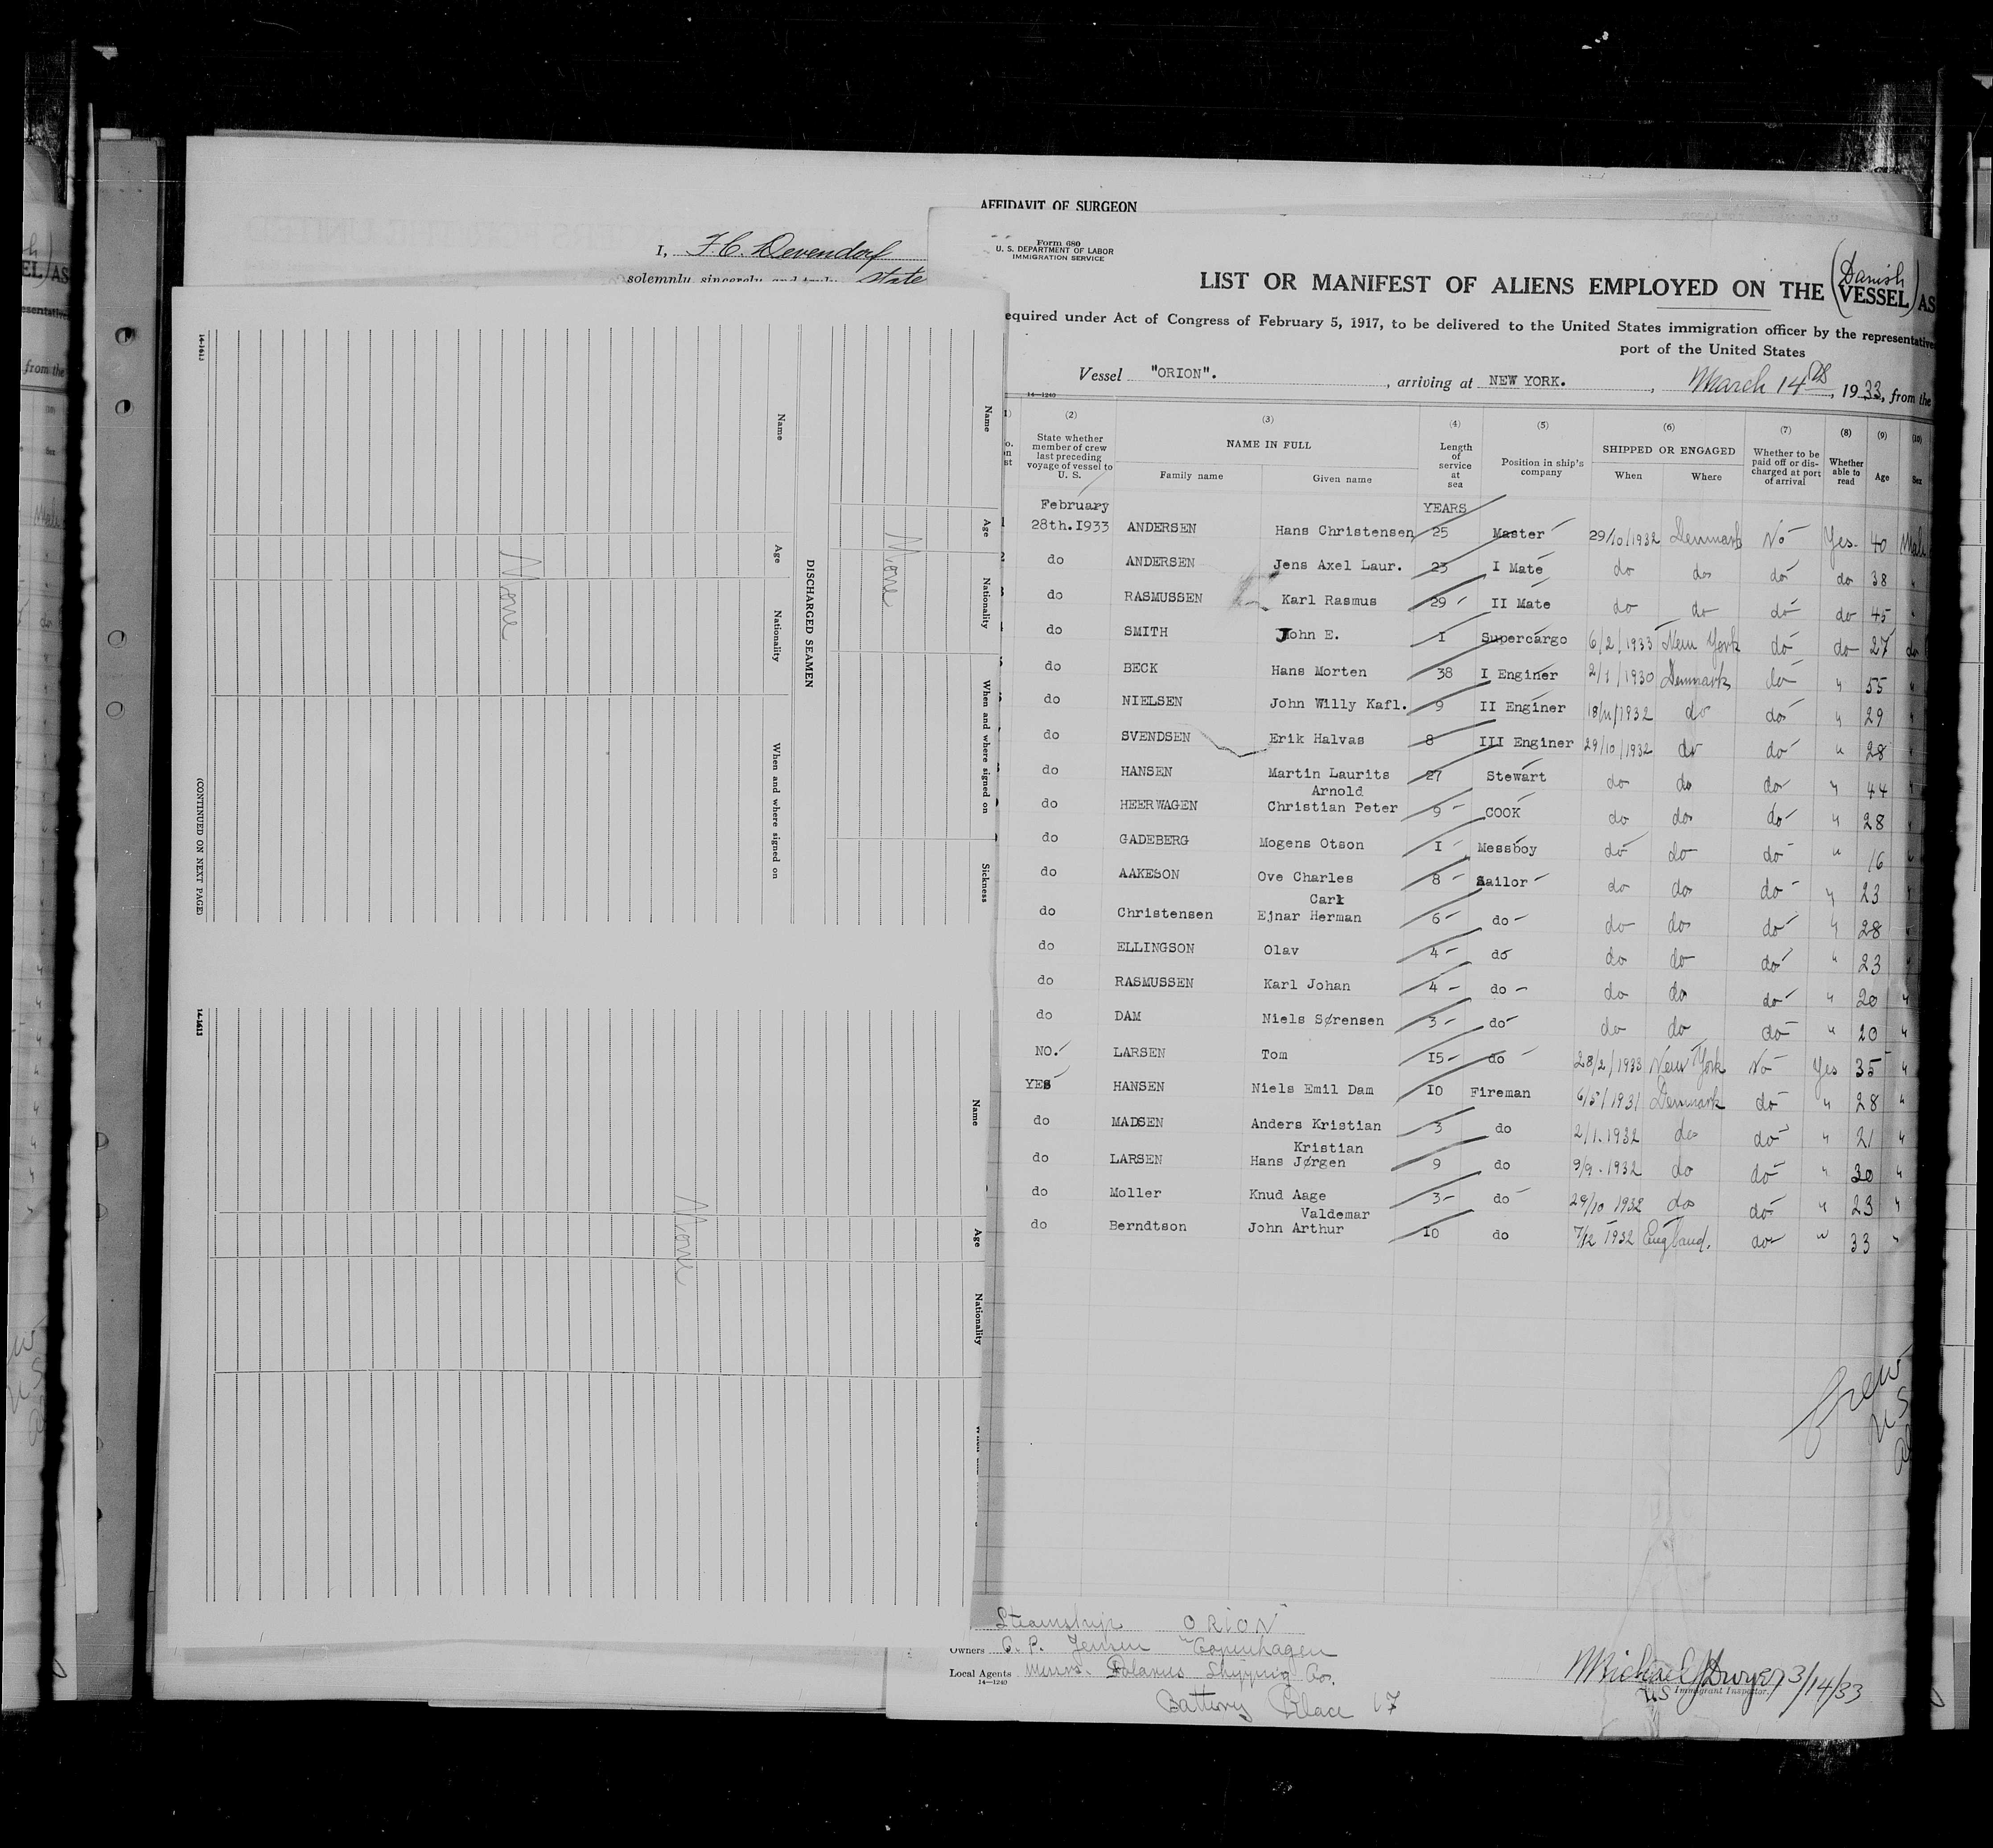 AFFIDAVIT OF SURGEON
I, F.C. Devendorf
solemnly, sincerely, and truly state
14-1613
Name Age Nationality When and where signed on Sickness
None
DISCHARGED SEAMEN
Name Age Nationality When and where signed on
None
(CONTINUED ON NEXT PAGE)
14-1613
Name Age Nationality
None
Form 680
U. S. DEPARTMENT OF LABOR
IMMIGRATION SERVICE
LIST OR MANIFEST OF ALIENS EMPLOYED ON THE (Danish VESSEL) AS
equired under Act of Congress of February 5, 1917, to be delivered to the United States immigration officer by the representative
port of the United States
Vessel "ORION". , arriving at NEW YORK. , March 14th, 1933, from the
14-1240
(2) (3) (4) (5) (6) (7) (8) (9) (10)
State whether member of crew last preceding voyage of vessel to U. S. NAME IN FULL Family name Given name Length of service at sea Position in ship's company SHIPPED OR ENGAGED When Where Whether to be paid off or discharged at port of arrival Whether able to read Age Sex
February YEARS
28th.1933 ANDERSEN Hans Christensen 25 Master 29/10/1932 Denmark No Yes. 40 Male
do ANDERSEN Jens Axel Laur. 23 I Mate do do do do 38 "
do RASMUSSEN Karl Rasmus 29 II Mate do do do do 45 "
do SMITH John E. I Supercargo 6/2/1933 New York do do 27 do
do BECK Hans Morten 38 I Enginer 2/1/1930 Denmark do " 55 "
do NIELSEN John Willy Kafl. 9 II Enginer 18/11/1932 do do " 29 "
do SVENDSEN Erik Halvas 8 III Enginer 29/10/1932 do do " 28 "
do HANSEN Martin Laurits 27 Stewart do do do " 44 "
Arnold
do HEERWAGEN Christian Peter 9 COOK do do do " 28 "
do GADEBERG Mogens Otson I Messboy do do do " 16 "
do AAKESON Ove Charles 8 Sailor do do do " 23 "
Carl
do Christensen Ejnar Herman 6 do do do do " 28 "
do ELLINGSON Olav 4 do do do do " 23 "
do RASMUSSEN Karl Johan 4 do do do do " 20 "
do DAM Niels Sørensen 3 do do do do " 20 "
NO. LARSEN Tom 15 do 28/2/1933 New York No Yes 35 "
YES HANSEN Niels Emil Dam 10 Fireman 6/5/1931 Denmark do " 28 "
do MADSEN Anders Kristian 3 do 2/1.1932 do do " 21 "
Kristian
do LARSEN Hans Jørgen 9 do 9/9.1932 do do " 30 "
do Moller Knud Aage 3 do 29/10 1932 do do " 23 "
Valdemar
do Berndtson John Arthur 10 do 7/12 1932 England. do " 33 "
Steamship ORION
Owners C. P. Jensen Copenhagen
Local Agents Messrs. Shipping Co.
14-1240
Battery Place 17
Michael J Dwyer 3/14/33
U.S Immigrant Inspector.